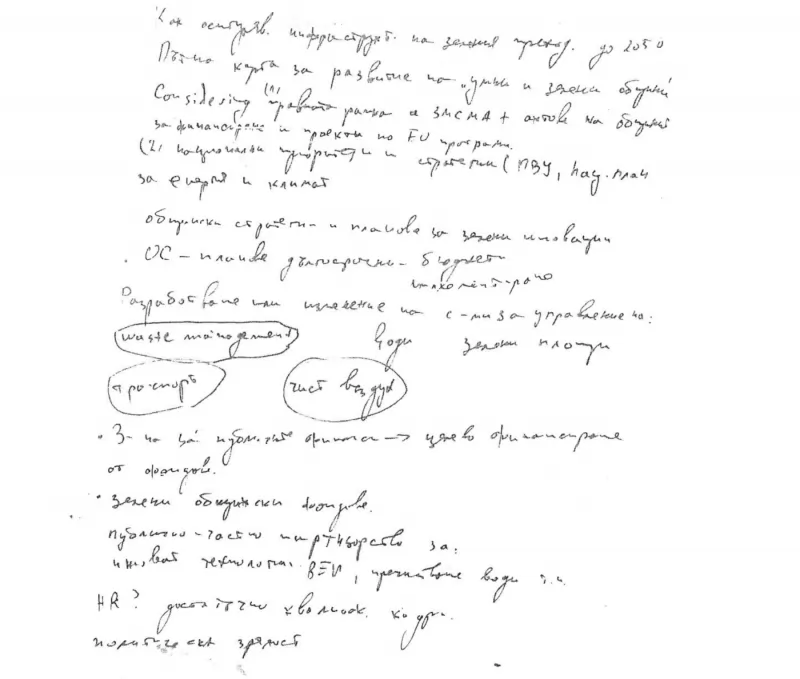 Как осигуряв. инфраструкт. на зеления преход. до 2050
Пътна карта за развитие на "умни и зелени общини"
Considering (1) правната рамка а ЗМСМА + актове на общините
за финансиране и проекти по EU програми.
(2) национални приоритети и стратегии (ПВУ, Нац. план
за енергия и климат
общински стратегии и планове за зелени иновации
. ОС – планове дългосрочни – бюджети
Разработване или изменение на с-ми за управление на:
waste management води зелени площи
транспорт чист въздух
• З-на за публичните финанси → целево финансиране
от фондов.
• зелени общински фондове.
публично-частно партньорство за:
иноват технологии ВЕИ, пречистване води т.н.
HR? достатъчно квалифик. кадри.
политическа зрялост